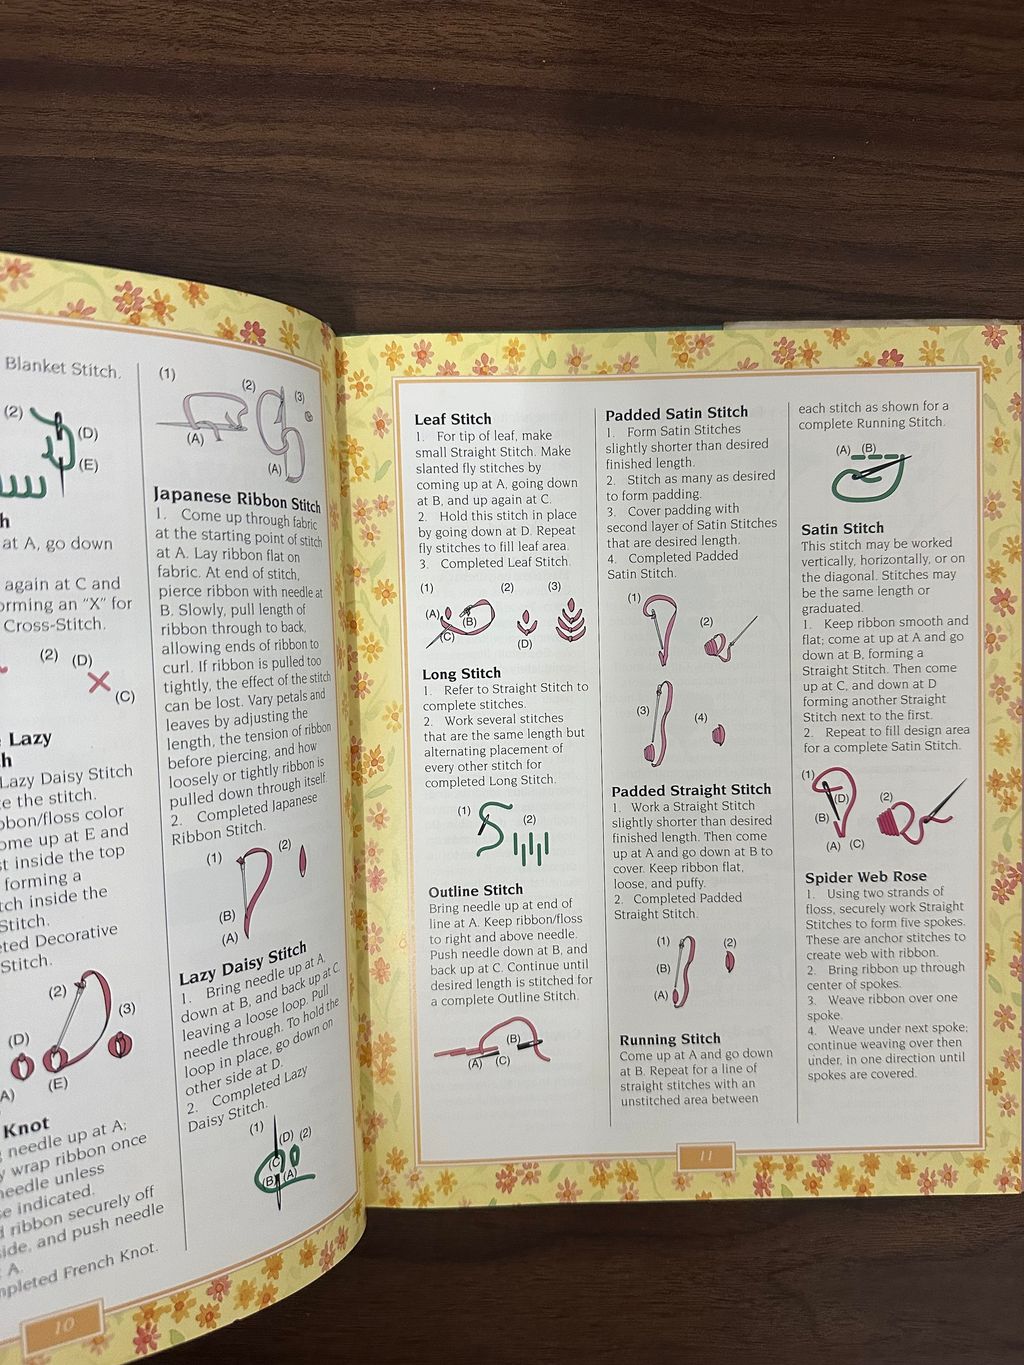 Blanket Stitch.
(2)
(D)
(E)
h
at A, go down
again at C and
orming an "X" for
Cross-Stitch.
(2) (D)
(C)
Lazy
h
Lazy Daisy Stitch
e the stitch.
bbon/floss color
ome up at E and
st inside the top
forming a
tch inside the
Stitch.
eted Decorative
Stitch.
(2)
(3)
(D)
A)
(E)
Knot
needle up at A;
y wrap ribbon once
needle unless
se indicated.
d ribbon securely off
side, and push needle
A.
mpleted French Knot.
10
(1)
(2)
(3)
(A)
(A)
Japanese Ribbon Stitch
1. Come up through fabric
at the starting point of stitch
at A. Lay ribbon flat on
fabric. At end of stitch,
pierce ribbon with needle at
B. Slowly, pull length of
ribbon through to back,
allowing ends of ribbon to
curl. If ribbon is pulled too
tightly, the effect of the stitch
can be lost. Vary petals and
leaves by adjusting the
length, the tension of ribbon
before piercing, and how
loosely or tightly ribbon is
pulled down through itself.
2. Completed Japanese
Ribbon Stitch.
(1) (2)
(B)
(A)
Lazy Daisy Stitch
1. Bring needle up at A,
down at B, and back up at C,
leaving a loose loop. Pull
needle through. To hold the
loop in place, go down on
other side at D.
2. Completed Lazy
Daisy Stitch.
(1)
(D) (2)
(C)
(B) (A)
Leaf Stitch
1. For tip of leaf, make
small Straight Stitch. Make
slanted fly stitches by
coming up at A, going down
at B, and up again at C.
2. Hold this stitch in place
by going down at D. Repeat
fly stitches to fill leaf area.
3. Completed Leaf Stitch.
(1) (2) (3)
(A) (B)
(C) (D)
Long Stitch
1. Refer to Straight Stitch to
complete stitches.
2. Work several stitches
that are the same length but
alternating placement of
every other stitch for
completed Long Stitch.
(1) (2)
Outline Stitch
Bring needle up at end of
line at A. Keep ribbon/floss
to right and above needle.
Push needle down at B, and
back up at C. Continue until
desired length is stitched for
a complete Outline Stitch.
(B)
(A) (C)
Padded Satin Stitch
1. Form Satin Stitches
slightly shorter than desired
finished length.
2. Stitch as many as desired
to form padding.
3. Cover padding with
second layer of Satin Stitches
that are desired length.
4. Completed Padded
Satin Stitch.
(1)
(2)
(3)
(4)
Padded Straight Stitch
1. Work a Straight Stitch
slightly shorter than desired
finished length. Then come
up at A and go down at B to
cover. Keep ribbon flat,
loose, and puffy.
2. Completed Padded
Straight Stitch.
(1) (2)
(B)
(A)
Running Stitch
Come up at A and go down
at B. Repeat for a line of
straight stitches with an
unstitched area between
each stitch as shown for a
complete Running Stitch.
(A) (B)
Satin Stitch
This stitch may be worked
vertically, horizontally, or on
the diagonal. Stitches may
be the same length or
graduated.
1. Keep ribbon smooth and
flat; come at up at A and go
down at B, forming a
Straight Stitch. Then come
up at C, and down at D
forming another Straight
Stitch next to the first.
2. Repeat to fill design area
for a complete Satin Stitch.
(1)
(D) (2)
(B)
(A) (C)
Spider Web Rose
1. Using two strands of
floss, securely work Straight
Stitches to form five spokes.
These are anchor stitches to
create web with ribbon.
2. Bring ribbon up through
center of spokes.
3. Weave ribbon over one
spoke.
4. Weave under next spoke;
continue weaving over then
under, in one direction until
spokes are covered.
11